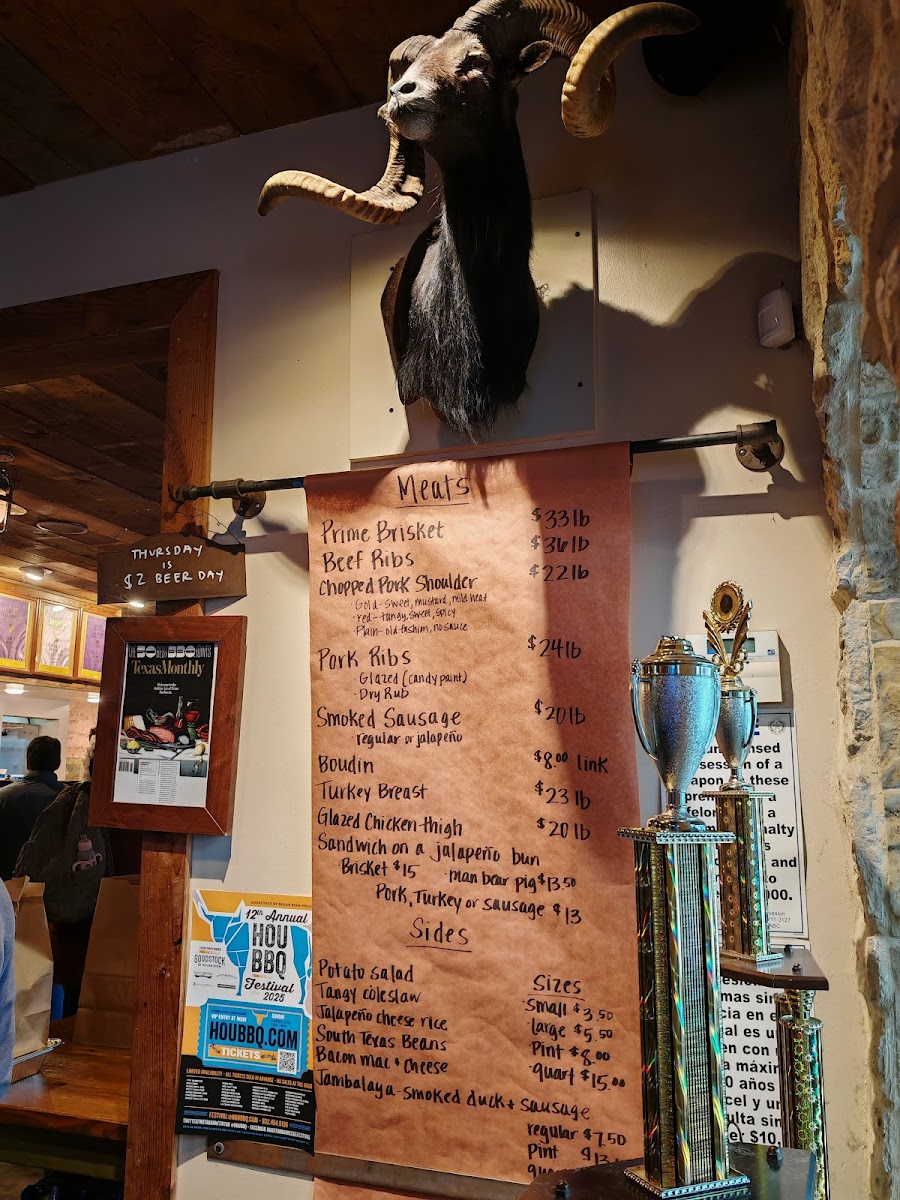 Meats
Prime Brisket $33 lb
Beef Ribs $36 lb
Chopped Pork Shoulder $22 lb
· Gold - Sweet, mustard, mild heat
· red - tangy, sweet, spicy
· Plain - old fashion, no sauce
Pork Ribs $24 lb
· Glazed (candy paint)
· Dry Rub
Smoked Sausage $20 lb
· regular or jalapeño
Boudin $8.00 link
Turkey Breast $23 lb
Glazed Chicken thigh $20 lb
Sandwich on a jalapeño bun
· Brisket $15 · man bear pig $13.50
Pork, Turkey or sausage $13
Sides
Potato salad
Tangy coleslaw
Jalapeño cheese rice
South Texas Beans
Bacon mac & cheese
Sizes
Small $3.50
large $5.50
Pint $8.00
quart $15.00
Jambalaya - smoked duck + sausage
regular $7.50
Pint $13
THURSDAY
IS
$2 BEER DAY
THE 50 BEST BBQ JOINTS
TexasMonthly
12th Annual
HOU
BBQ
Festival
2025
GOODSTOCK
VIP ENTRY AT NOON
SUNDAY
HOUBBQ.COM
TICKETS
LIMITED AVAILABILITY - ALL TICKETS SOLD IN ADVANCE - NO SALES AT THE
FESTIVAL@HOUBBQ.COM
nsed
session of a
these
a
felon
nalty
and
000.
mas
cia en
al es u
en con
máxi
0 años
cel y un
ulta sin
$10,